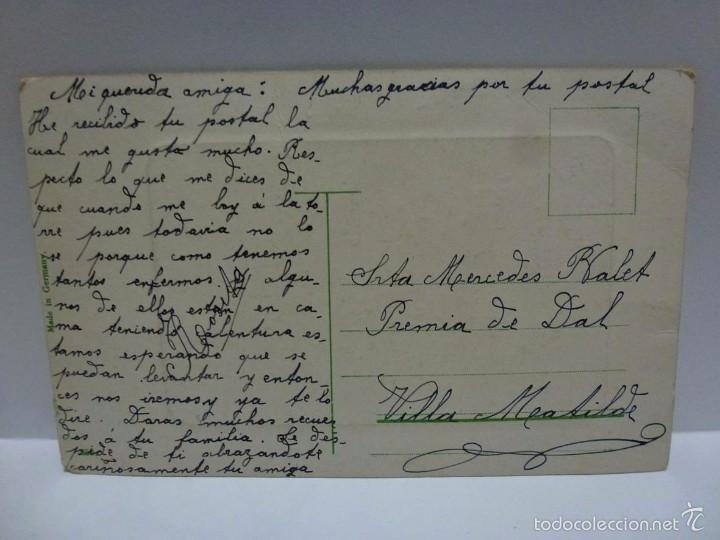 Mi querida amiga: Muchas gracias por tu postal
He recibido tu postal la
cual me gusta mucho. Res-
pecto lo que me dices de
que cuando me boy á la to-
rre pues todavia no lo
se porque como tenemos
tantos enfermos. y algu-
nos de ellos estan en ca-
ma teniendo calentura es-
tamos esperando que se
puedan levantar y enton-
ces nos iremos y ya te lo
dire. Daras muchos recuer-
dos á tu familia. Se des-
pide de ti abrazandote
cariñosamente tu amiga
Made in Germany.
Srta Mercedes
Premia de Dal
Villa Matilde
todocoleccion.net